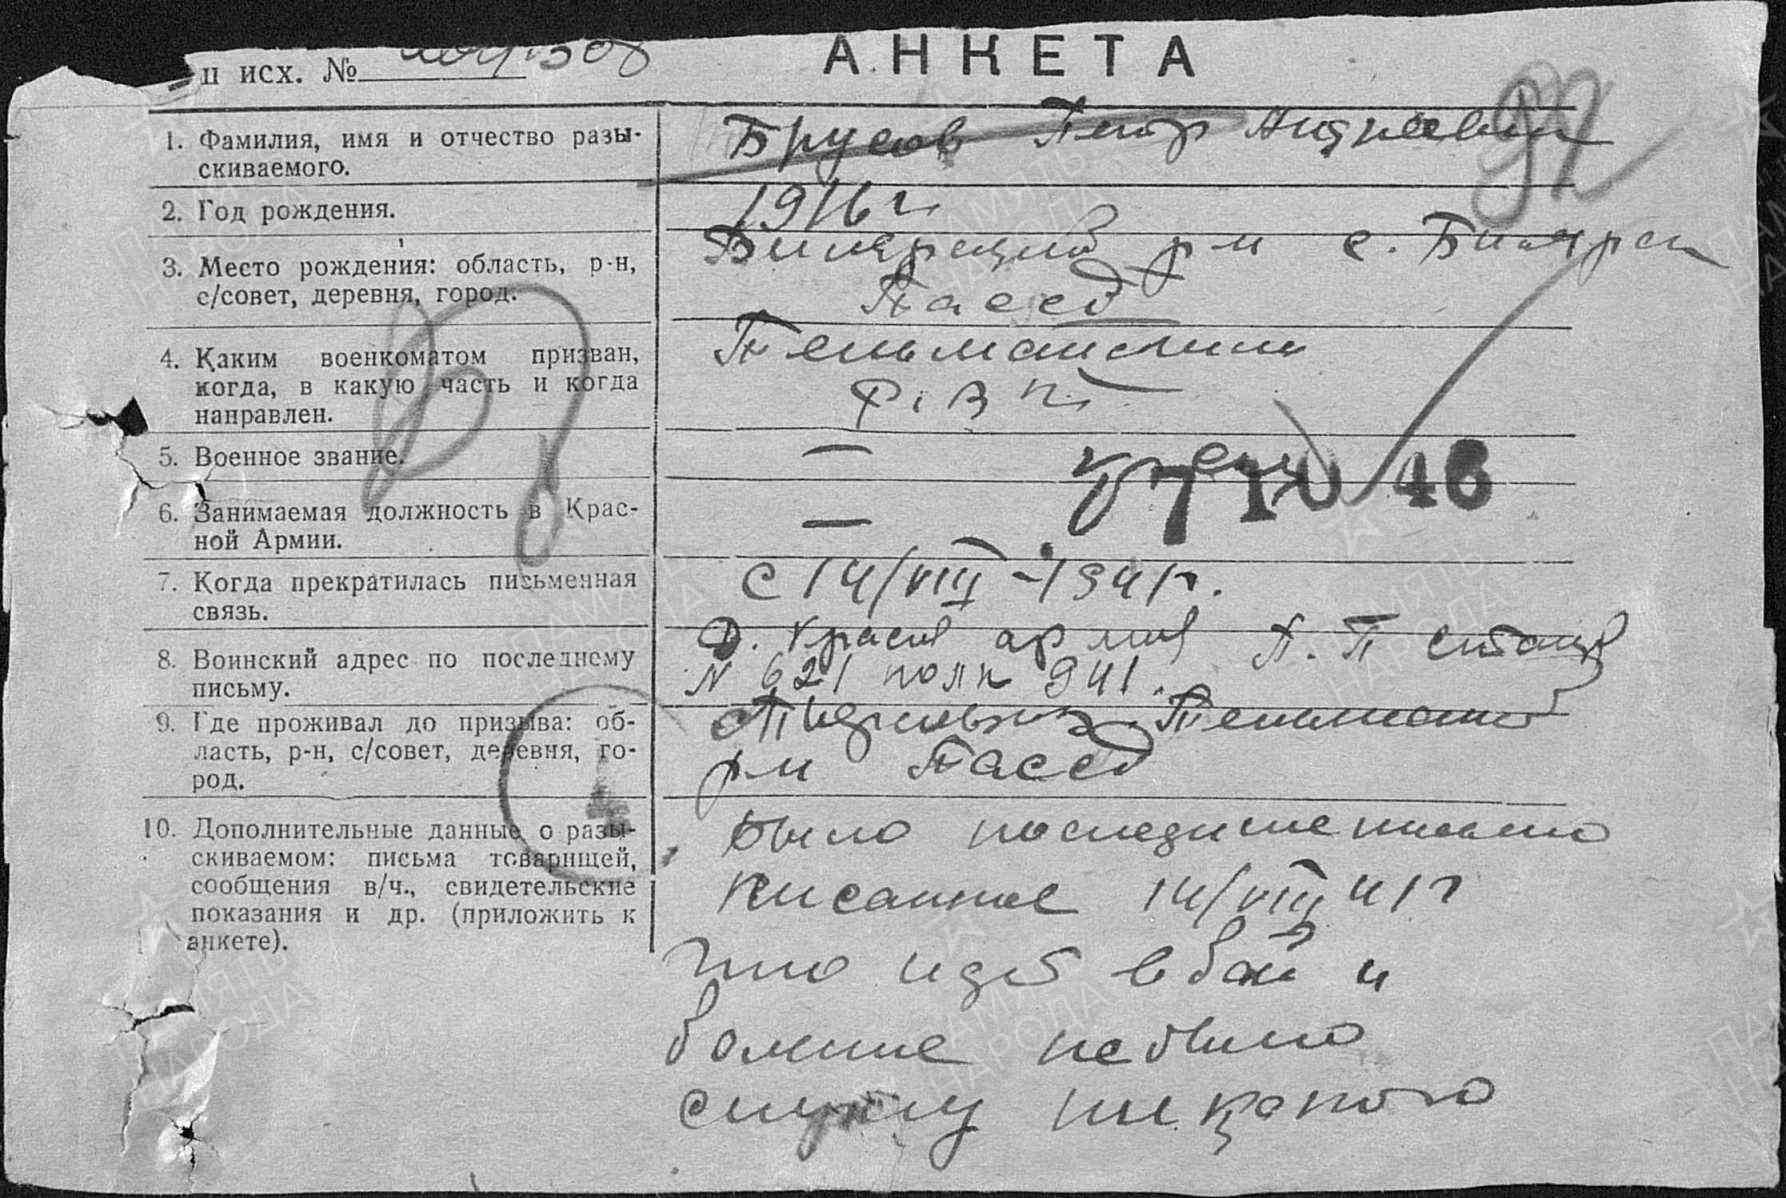 п исх. №
АНКЕТА
92
1. Фамилия, имя и отчество разы-
скиваемого.
Брусов Петр Андреевич
2. Год рождения.
1916 г.
3. Место рождения: область, р-н,
с/совет, деревня, город.
Билярский р-н с. Билярск
ТАССР
4. Каким военкоматом призван,
когда, в какую часть и когда
направлен.
Тельманским
Р.В.К.
5. Военное звание.
—
6. Занимаемая должность в Крас-
ной Армии.
—
7 10 46
7. Когда прекратилась письменная
связь.
с 14/VIII - 1941г.
8. Воинский адрес по последнему
письму.
Д. Красной армии П. П станц
N 621 полк 941.
9. Где проживал до призыва: об-
ласть, р-н, с/совет, деревня, го-
род.
Тельманский
р-н ТАССР
10. Дополнительные данные о разы-
скиваемом: письма товарищей,
сообщения в/ч., свидетельские
показания и др. (приложить к
анкете).
Было последние письмо
писанное 14/VIII 41г
что идет в бой и
больше небыло
слуху никакого